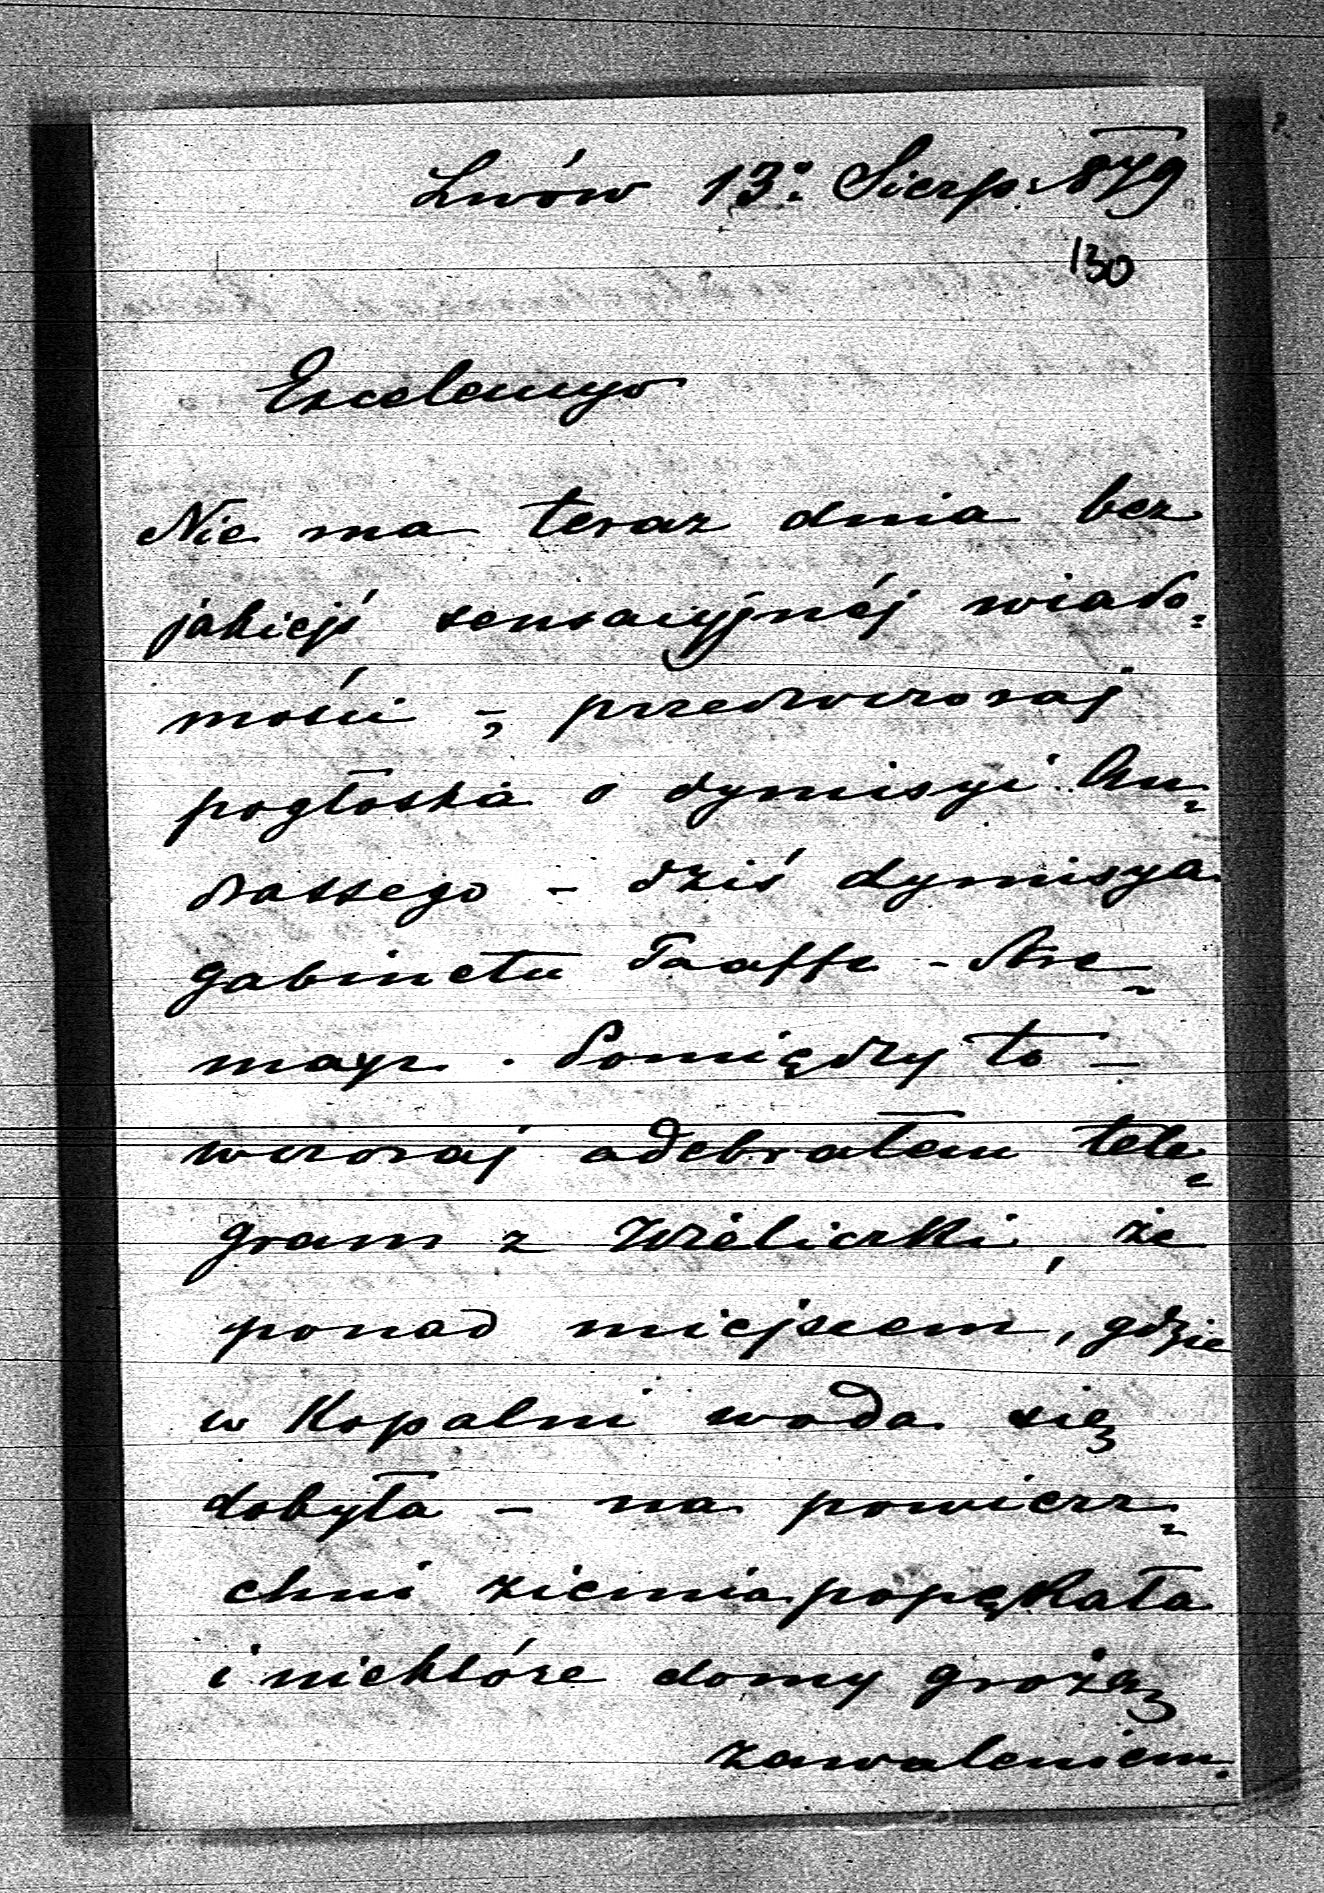 Lwów 13: Sierp: 879
130
Excelencyo
Nie ma teraz dnia bez
jakiejś sensacyjnéj wiado-
mości -, przedwczoraj
pogłoska o dymisyi An-
drassego - dziś dymisya
gabinetu Taaffe - Stre-
mayr. Pomiędzy to -
wczoraj odebrałem tele-
gram z Wieliczki, że
ponad miejscem, gdzie
w kopalni woda się
dobyła - na powierz-
chni ziemia popękała
i niektóre domy grożą
zawaleniem.